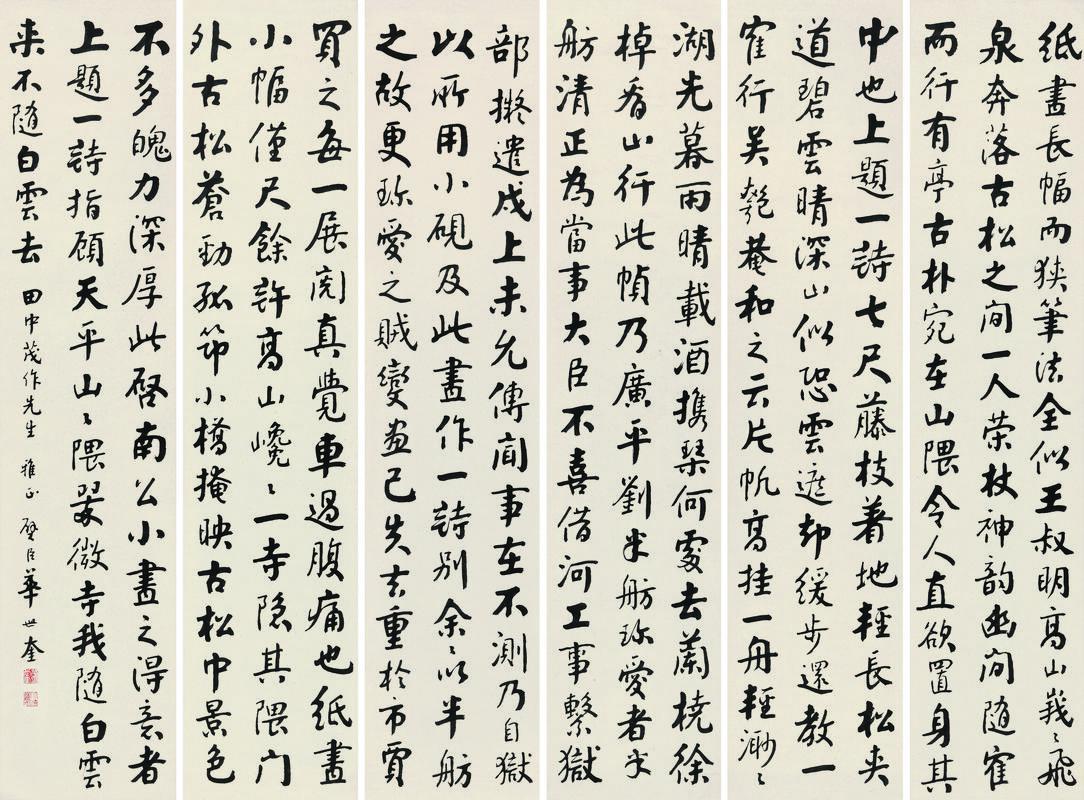 纸畫長幅而狭筆法全似王叔明高山峩〻飛
泉奔落古松之间一人荣杖神韵幽间随寉
而行有亭古朴宛在山隈令人直欲置身其
中也上題一詩七尺藤枝着地輕長松夹
道碧雲晴深山似恐雲遮却緩步還教一
寉行吴匏菴和之云片帆高挂一舟輕渺〻
湖先暮雨晴載酒携琹何處去蘭桡徐
棹看山行此幀乃廣平劉半舫珍愛者半
舫清正為當事大臣不喜借河工事繫獄
部擬遣戍上未允傳闻事在不測乃自獄
以所用小硯及此畫作一詩别余〻以半舫
之故更珍愛之贼變盡已失去重於市賈
買之每一展阅真覺車過腹痛也紙畫
小幅僅尺餘許高山巉〻一寺隐其隈门
外古松蒼勁孤筇小橋掩映古松中景色
不多魄力深厚此啓南公小畫之得意者
上題一詩指顾天平山〻隈翠微寺我随白雲
来不随白雲去 田中茂作先生 雅正 璧臣華世奎